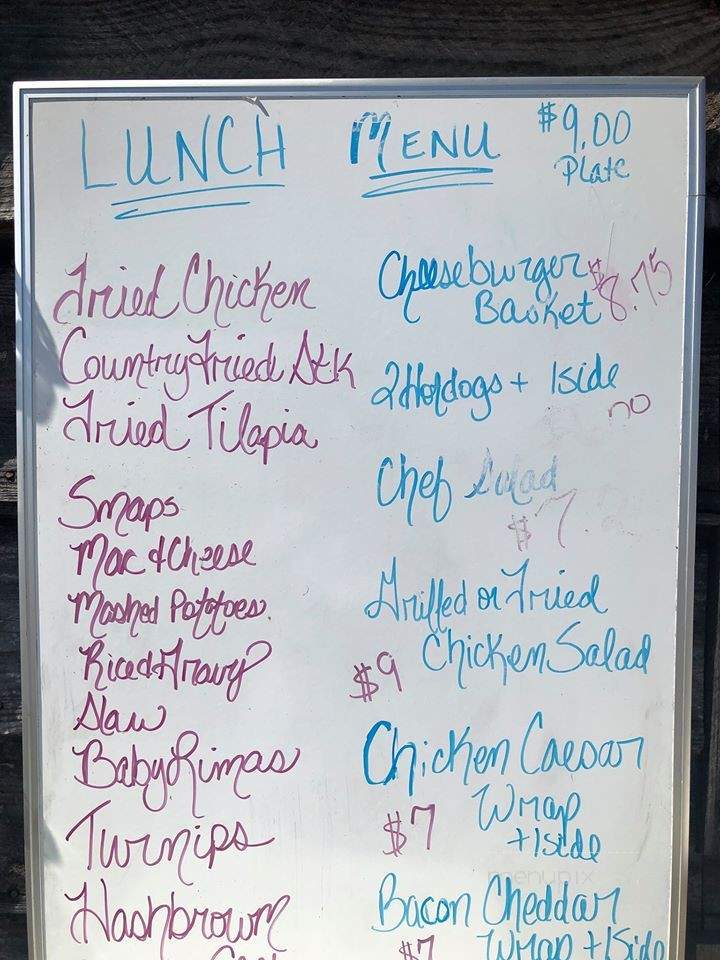 LUNCH MENU $9.00
Plate
Fried Chicken
Country Fried Stk
Fried Tilapia
Snaps
Mac & Cheese
Mashed Potatoes
Rice & Gravy
Slaw
Baby Limas
Turnips
Hashbrown
Cheeseburger $8.75
Basket
2 Hotdogs + 1side
no
Chef Salad
$7.
Grilled or Fried
Chicken Salad
$9
Chicken Caesar
Wrap
$7 + 1side
menupix
Bacon Cheddar
$7 Wrap + 1Side